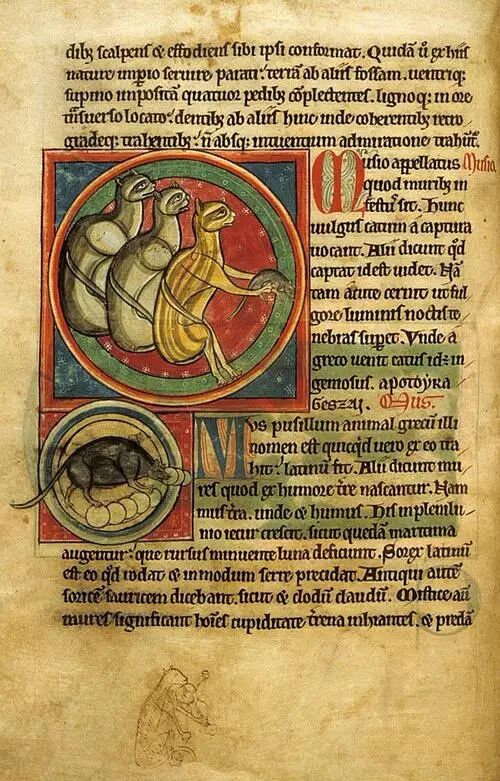 dibꝫ scalpens ⁊ effodiens sibi ipsi conformat. Quidā ū̓ ex hiis
nature impio servire parati. terrā ab aliis fossam. ventriqꝫ
supino impositā quatuor pedibꝫ cōplectentes. lignoqꝫ in ore
tnͣsverso locato. dentibꝫ ab aliis hinc inde coherentibꝫ retro
gͣdeqꝫ trahentibꝫ. ñ absqꝫ intuentium admiratione trahūt.
Musio appellatus Musio.
quod muribꝫ in
festꝰ sit. Hunc
vulgus catum a captura
vocant. Alii dicunt qd̓
captat id est videt. Nā
tam acute cernit ut ful
gore luminis noctis te
nebras supet. Vnde a
greco venit catus id ÷ in
geniosus. apotoyra
Geszai. Mus.
Mus pusillum animal grecū illi
nomen est quicqd̓ vero ex eo tra
hit̓. latinū fit. Alii dicunt mu
res quod ex humore tr̄e nascantur. Nam
mus tr̄a. unde ⁊ humus. His in plenilu
nio iecur crescit. sicut quedā maritima
augentur. que rursus minuente luna deficiunt. Sorex latinū
est eo qd̓ rodat ⁊ in modum serre precidat. Antiqui autē
soricē sauricem dicebant. sicut ⁊ clodū claudū. Mistice aū
mures significant hoīes cupiditate tr̄ena inhiantes. ⁊ predā